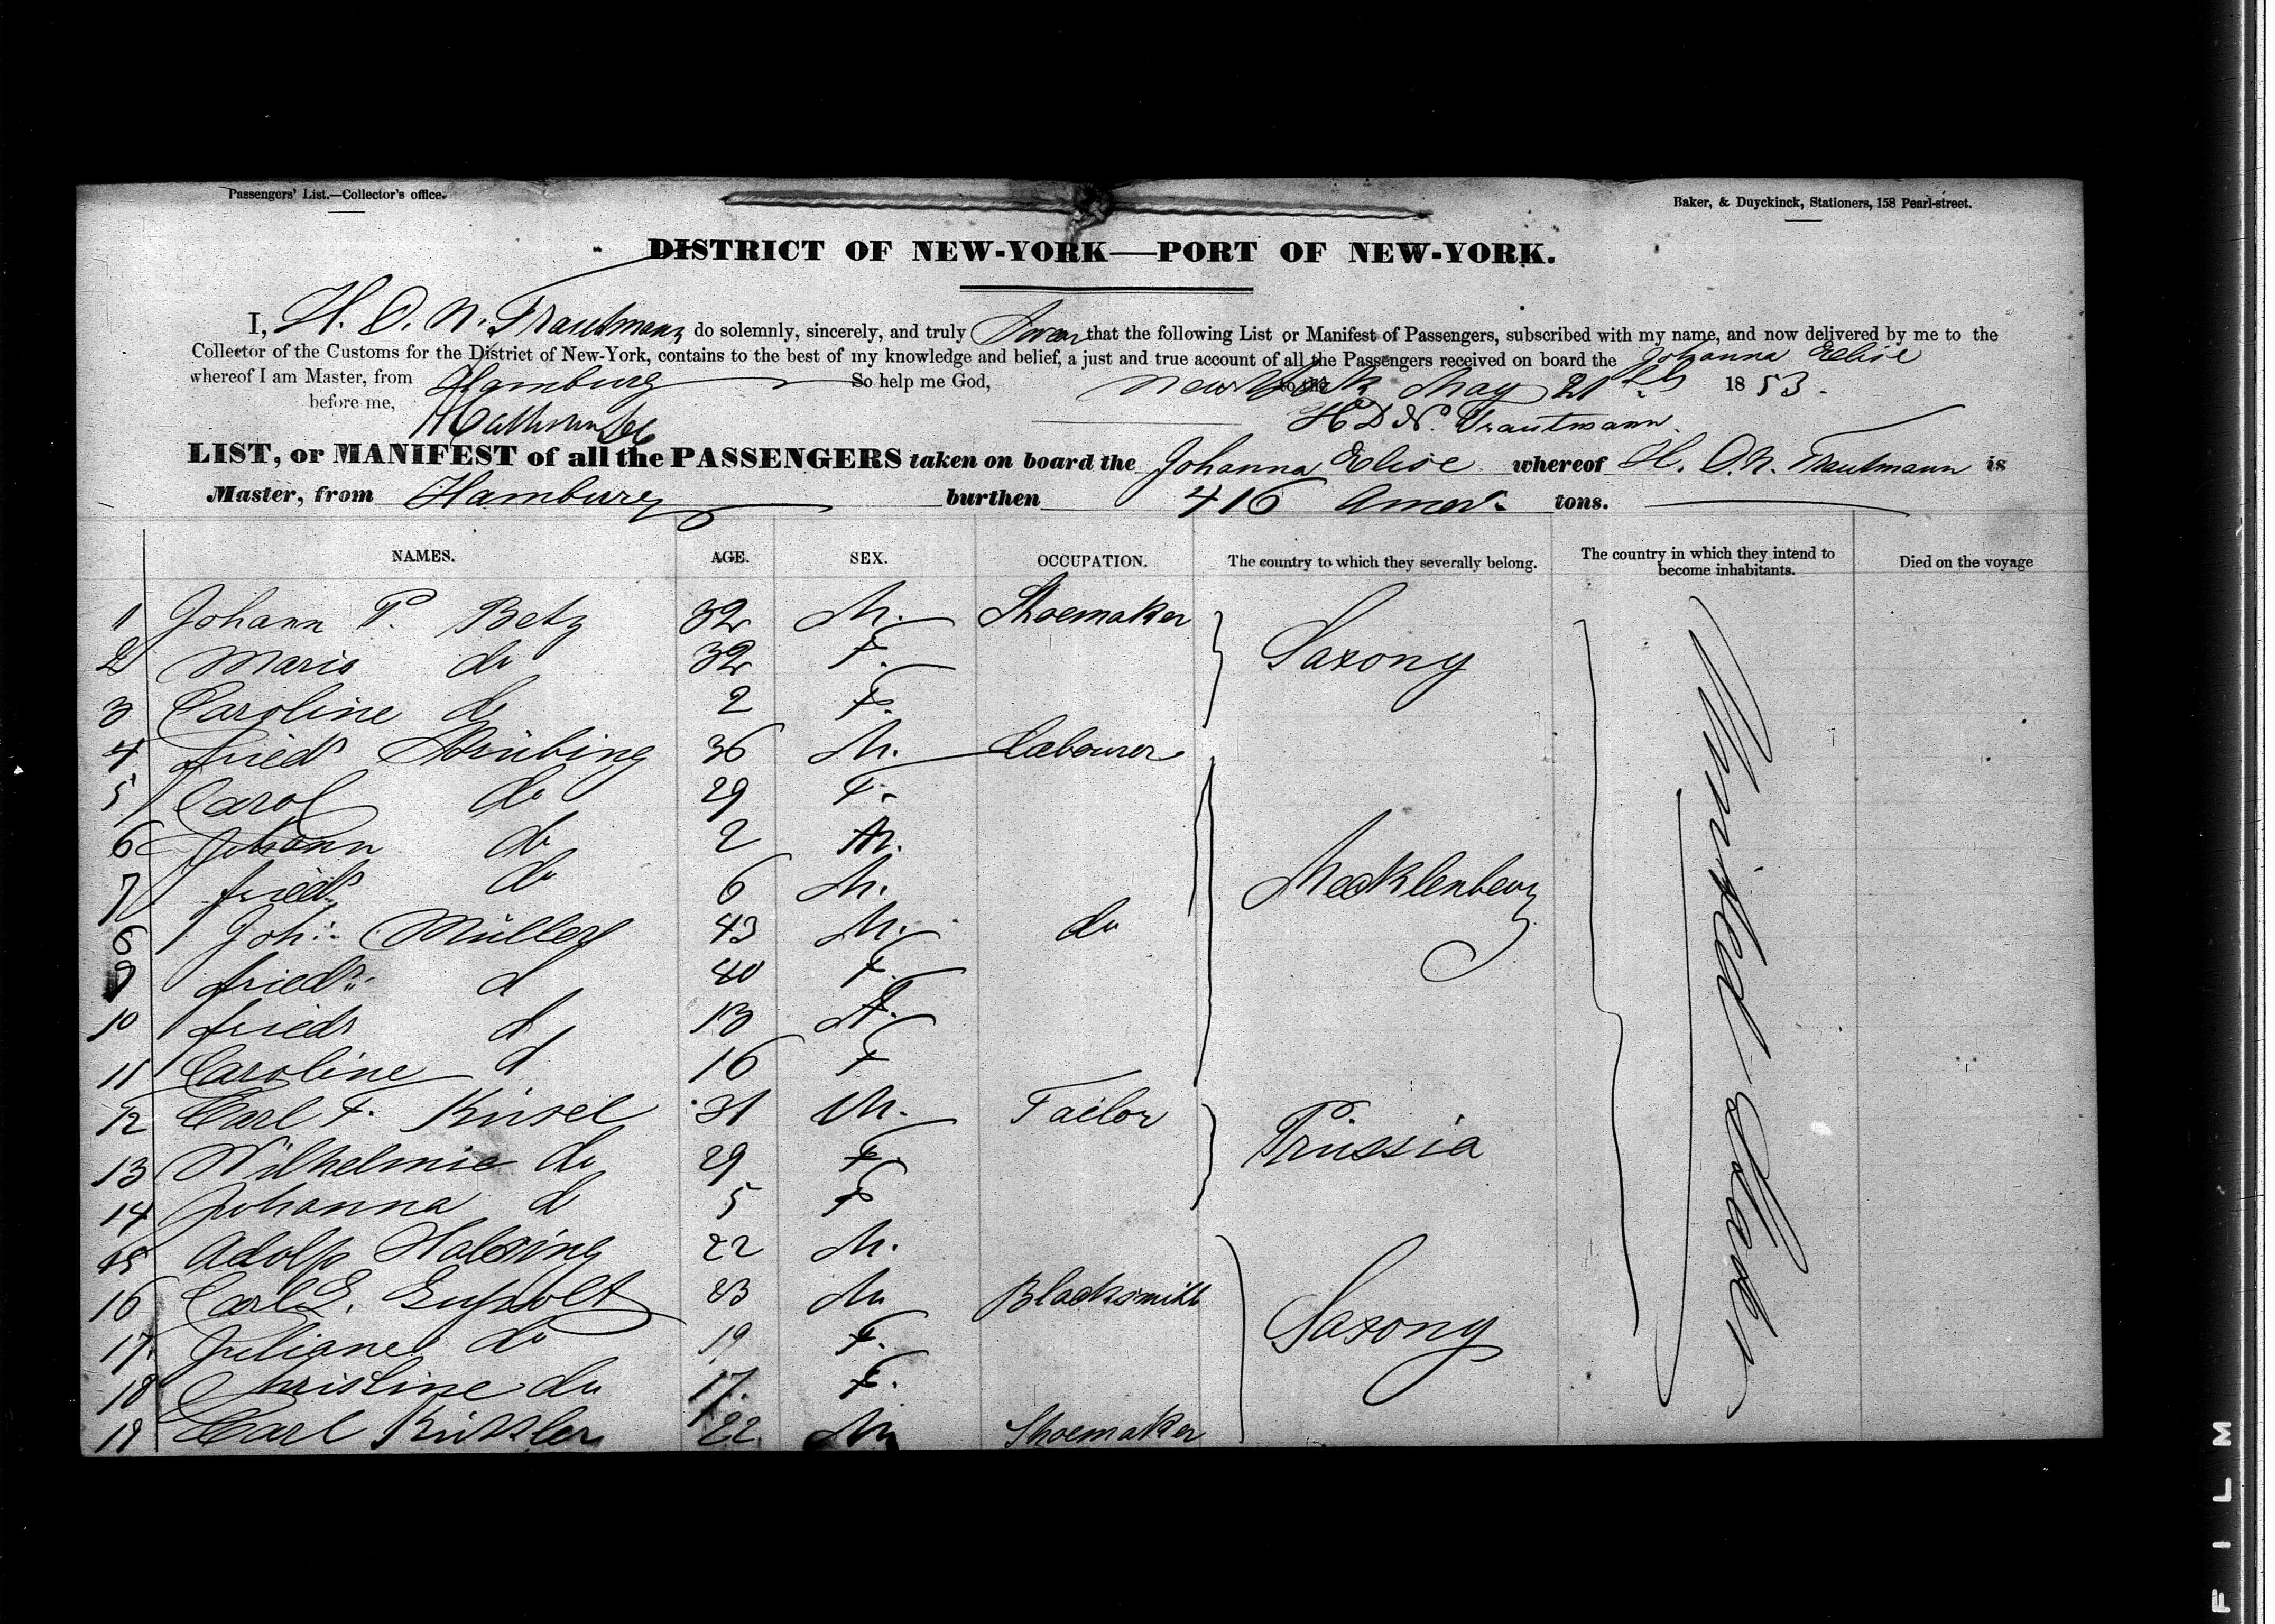 Passengers' List.—Collector's office.
Baker, & Duyckinck, Stationers, 158 Pearl-street.
DISTRICT OF NEW-YORK—PORT OF NEW-YORK.
I, H. D. N. Trautmann do solemnly, sincerely, and truly Swear that the following List or Manifest of Passengers, subscribed with my name, and now delivered by me to the
Collector of the Customs for the District of New-York, contains to the best of my knowledge and belief, a just and true account of all the Passengers received on board the Johanna Elise
whereof I am Master, from Hamburg So help me God, New York May 21 1853.
before me, H D N. Trautmann.
LIST, or MANIFEST of all the PASSENGERS taken on board the Johanna Elise whereof H. D. N. Trautmann is
Master, from Hamburg burthen 416 Amer. tons.
NAMES. AGE. SEX. OCCUPATION. The country to which they severally belong. The country in which they intend to become inhabitants. Died on the voyage
1 Johann P. Betz 32 M. Shoemaker
2 Maria do 32 F. Saxony
3 Caroline do 2 F.
4 Friedr 36 M. Labourer
5 Carol do 29 F.
6 Johann do 2 M.
7 Friedr do 6 M. Mecklenburg
8 Joh: Müller 43 M. do
9 Friedr: d 40 F.
10 Friedr d 13 M.
11 Caroline d 16 F
12 Carl F. Küsel 31 M. Tailor
13 Wilhelmie do 29 F. Prussia
14 Johanna do 5 F
15 Adolp 22 M.
16 Carl E. 23 M Blacksmith
17 Juliane do 19 F. Saxony
18 Christine do 17. F.
19 Carl 22 M Shoemaker
United States
FILM